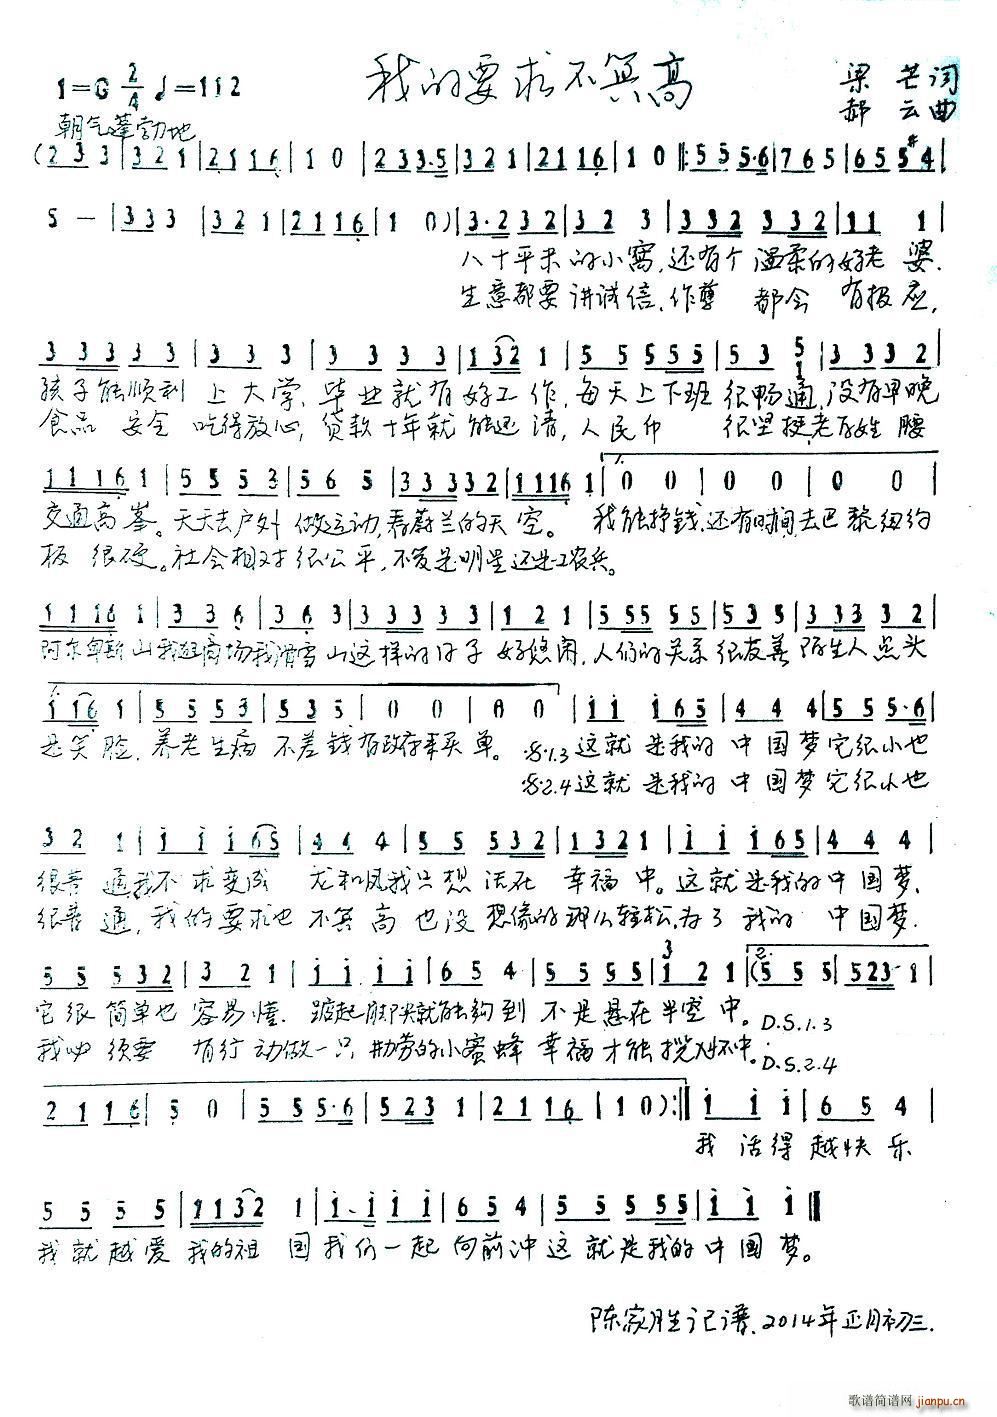 我的要求不算高
1=G 2/4 ♩=112
梁芒词
郝云曲
朝气蓬勃地
(2 3 3 | 3 2 1 | 2 1 1 6 | 1 0 | 2 3 3·5 | 3 2 1 | 2 1 1 6 | 1 0 |: 5 5 5·6 | 7 6 5 | 6 5 5 #4 |
5 — | 3 3 3 | 3 2 1 | 2 1 1 6 | 1 0) | 3·2 3 2 | 3 2 3 | 3 3 2 3 3 2 | 1 1 1 |
八十平米的小窝,还有个温柔的好老婆.
生意都要讲诚信,作孽都会有报应,
3 3 3 3 3 | 3 3 3 | 3 3 3 3 | 1 3 2 1 | 5 5 5 5 5 | 5 3 5 1 | 3 3 3 2 |
孩子能顺利上大学,毕业就有好工作,每天上下班很畅通,没有早晚
食品安全吃得放心,贷款十年就能还清,人民币很坚挺,老百姓腰
1 1 1 6 1 | 5 5 5 3 | 5 6 5 | 3 3 3 3 2 | 1 1 1 6 1 | 1. 0 0 | 0 0 | 0 0 |
交通高峯。天天去户外做运动,看蔚兰的天空。我能挣钱,还有时间去巴黎纽约
板很硬。社会相对很公平,不管是明星还是工农兵。
1 1 1 6 1 | 3 3 6 | 3 6 3 | 3 3 3 3 3 | 1 2 1 | 5 5 5 5 5 | 5 3 5 | 3 3 3 3 2 |
阿尔卑斯山我逛商场我滑雪山这样的日子好悠闲,人们的关系很友善陌生人点头
1 1 6 1 | 5 5 5 3 | 5 3 5 | 0 0 | 0 0 | i i i 6 5 | 4 4 4 | 5 5 5·6 |
是笑脸,养老生病不差钱有政府来买单。𝄋.1.3这就是我的中国梦它很小也
𝄋.2.4这就是我的中国梦它很小也
3 2 1 | i i i 6 5 | 4 4 4 | 5 5 5 3 2 | 1 3 2 1 | i i i 6 5 | 4 4 4 |
很普通我不求变成龙和凤我只想活在幸福中。这就是我的中国梦,
很普通,我的要求也不算高也没想像的那么轻松,为了我的中国梦.
5 5 5 3 2 | 3 2 1 | i i i i | 6 5 4 | 5 5 5 5 | 3 i 2 1 | 2. (5 5 5 | 5 2 3 1 |
它很简单也容易懂.踮起脚尖就能够到不是悬在半空中。D.S.1.3
我必须要有行动做一只勤劳的小蜜蜂幸福才能搅入怀中。D.S.2.4
2 1 1 6 | 5 0 | 5 5 5·6 | 5 2 3 1 | 2 1 1 6 | 1 0) :| i i i | 6 5 4 |
我活得越快乐
5 5 5 5 | 1 1 3 2 1 | i·i i i | 6 5 4 | 5 5 5 5 5 | i i i ‖
我就越爱我的祖国我们一起向前冲这就是我的中国梦。
陈家胜记谱.2014年正月初三.
歌谱简谱网
jianpu.cn